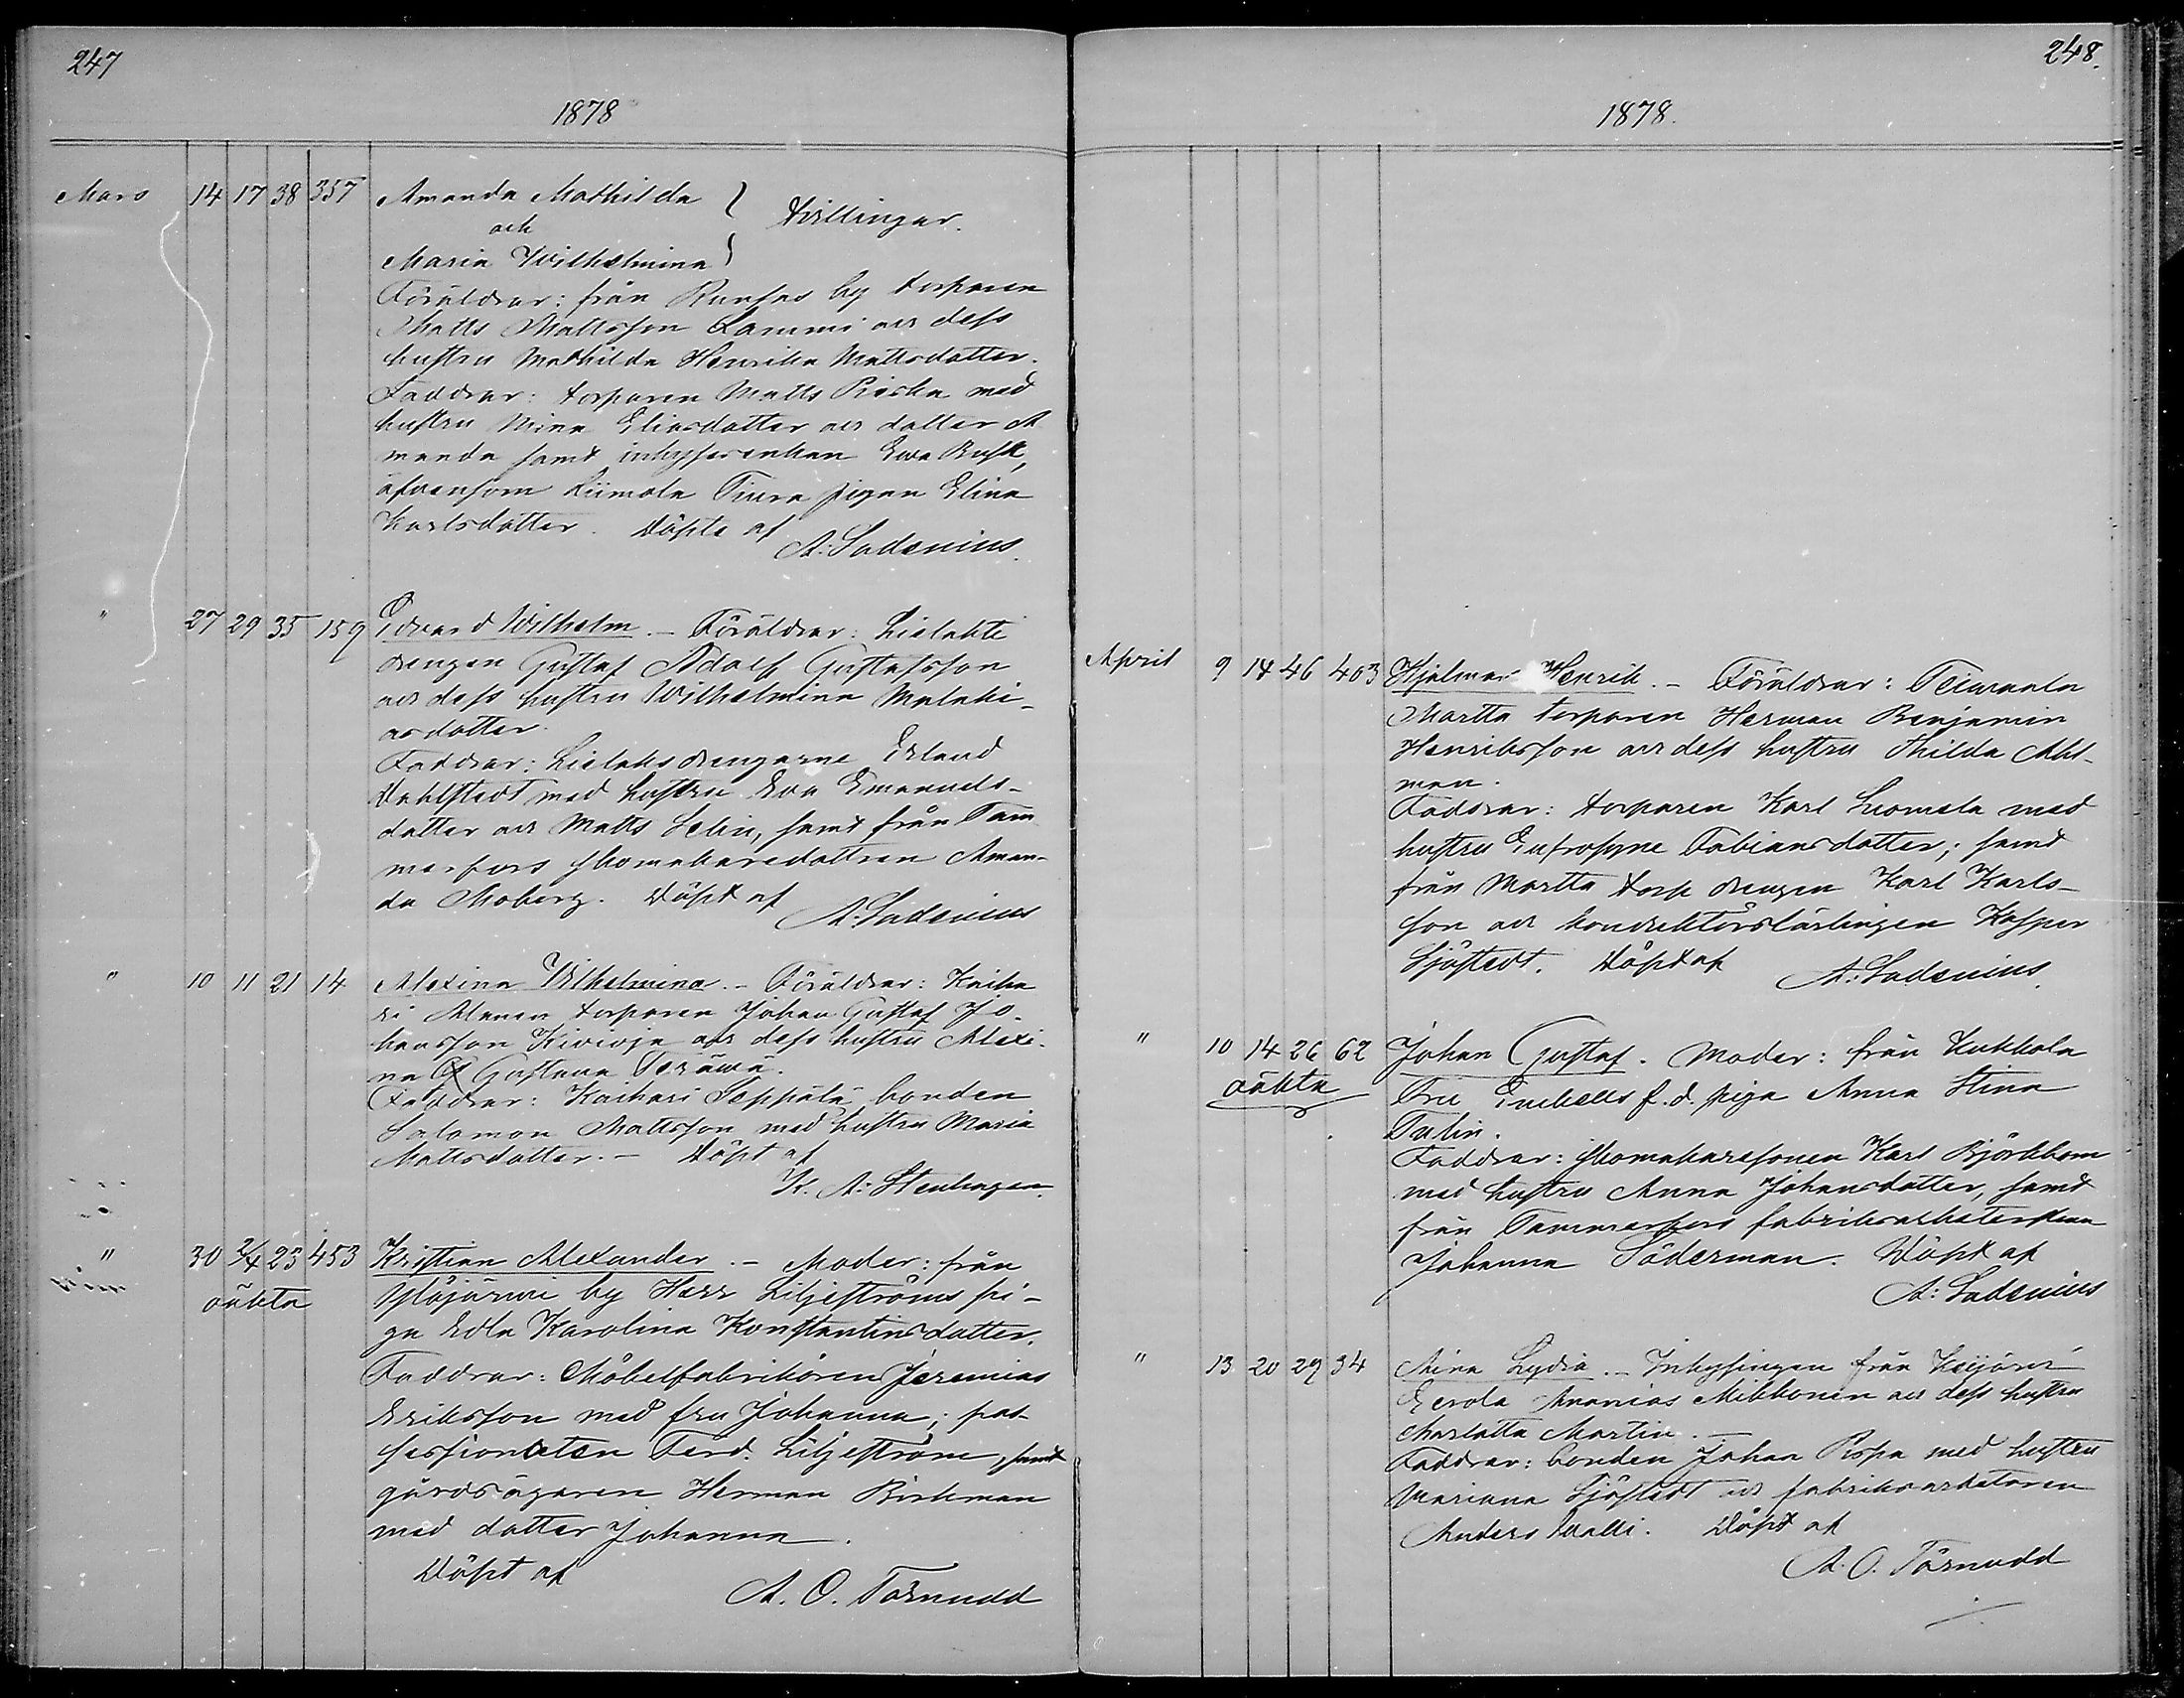 247
1878
Mars 14 17 38 357 Amanda Mathilda
och Tvillingar.
Maria Wilhelmina
Föräldrar: från by torparen
Matts Mattsson Lammi och dess
hustru Mathilda Henrika Mattsdotter.
Faddrar: torparen Matts med
hustru Mina Eliasdotter och dotter A
manda samt inhyses enkan Eva Rusk,
äfvensom Liimola Tiura pigan Elina
Karlsdotter. Döpte af
A: Ladenius.
" 27 29 35 159 Edvard Wilhelm. – Föräldrar: Lielahti
drengen Gustaf Adolf Gustafsson
och dess hustru Wilhelmina Malaki-
asdotter.
Faddrar: Lielaks drengarne Erland
Dahlstedt med hustru Eva Emanuels-
dotter och Matts Selin, samt från Tam
merfors skomakaredottren Aman-
da Moberg. Döpt af
A. Ladenius
" 10 11 21 14 Alexina Wilhelmina. – Föräldrar: Kaiha
ri torparen Johan Gustaf Jo-
hansson Kivioja och dess hustru Alexi-
na Gustava Perävä.
Faddrar: Kaihari Seppälä bonden
Salomon Mattsson med hustru Maria
Mattsdotter. – Döpt af
K. A: Stenhagen.
" 30 2/4 23 453 Kristian Alexander. – Moder: från
oäkta Ylöjärvi by Herr Liljeströms pi-
ga Edla Karolina Konstantinsdotter.
Faddrar: Möbelfabrikören Jeremias
Eriksson med fru Johanna; pos-
sessionaten Ferd. Liljeström, samt
gårdsägaren Herman Birkman
med dotter Johanna.
Döpt af
A. O. Törnudd
248.
1878.
April 9 14 46 403 Hjalmar Henrik. – Föräldrar:
Martta torparen Herman Benjamin
Henriksson och dess hustru Thilda Ahl-
man.
Faddrar: torparen Karl Luomala med
hustru Eufrosyne Fabiansdotter; samt
från Martta torp drengen Karl Karls-
son och konduktörslärlingen Kasper
Sjöstedt. Döpt af
A: Ladenius.
" 10 14 26 62 Johan Gustaf. Moder: från Kukkola
oäkta f. d. piga Anna Stina
Tulin.
Faddrar: skomakaresonen Karl Björkbom
med hustru Anna Johansdotter, samt
från Tammerfors fabriksarbeterskan
Johanna Söderman. Döpt af
A: Ladenius
" 13 20 29 34 Mina Lydia. – Inhysingen från Keijärvi
Eerola Ananias Mikkonen och dess hustru
Charlotta Martin. –
Faddrar: bonden Johan Pispa med hustru
Mariana Sjöstedt och fabriksarbetaren
Anders Valli. Döpt af
A. O. Törnudd